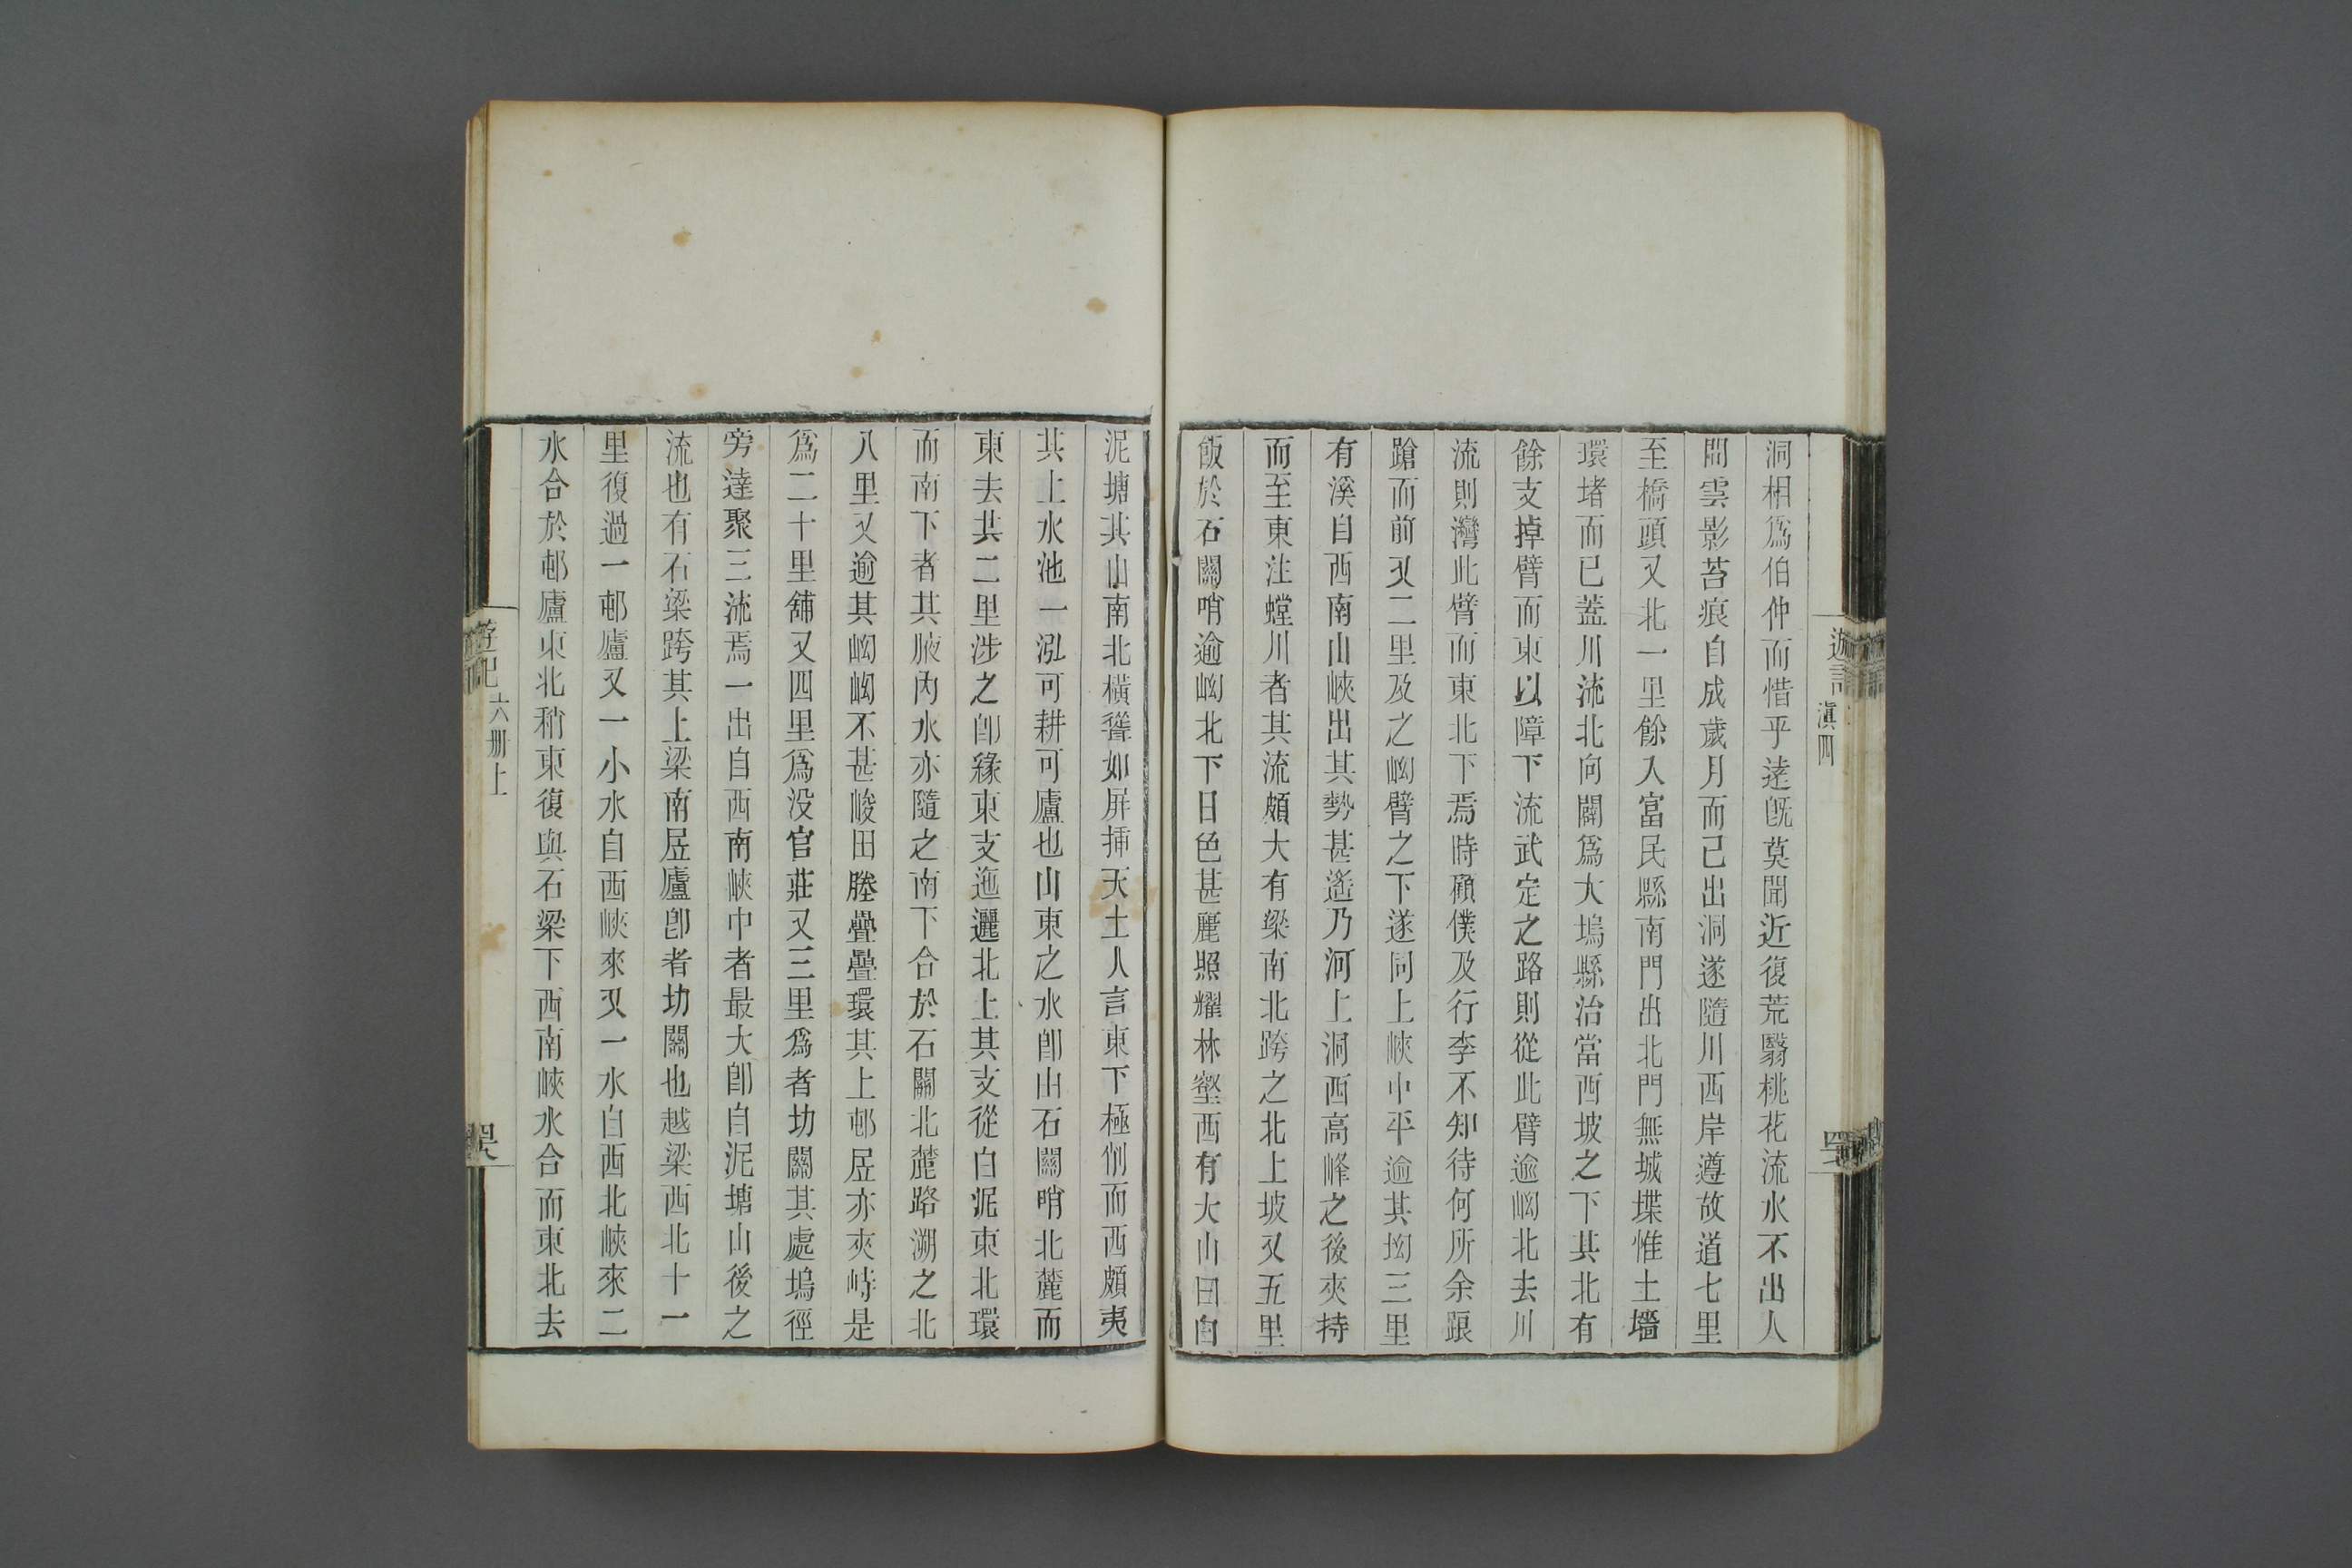 洞相爲伯仲而惜乎逺既莫聞近復荒翳桃花流水不出人
間雲影苔痕自成歲月而已出洞遂隨川西岸遵故道七里
至橋頭又北一里餘入富民縣南門出北門無城堞惟土墻
環堵而已蓋川流北向闢爲大塢縣治當西坡之下其北有
餘支掉臂而東以障下流武定之路則從此臂逾峢北去川
流則灣此臂而東北下焉時顧僕及行李不知待何所余踉
蹌而前又二里及之峢臂之下遂同上峽中平逾其坳三里
有溪自西南山峽出其勢甚遙乃河上洞西高峰之後夾持
而至東注螳川者其流頗大有梁南北跨之北上坡又五里
飯於石關哨逾峢北下日色甚麗照耀林壑西有大山曰白
泥塘其山南北橫聳如屏插天土人言東下極削而西頗夷
其上水池一泓可耕可廬也山東之水卽由石關哨北麓而
東去共二里涉之卽緣東支迤邐北上其支從白泥東北環
而南下者其腋內水亦隨之南下合於石關北麓路溯之北
八里又逾其峢峢不甚峻田塍疊疊環其上邨居亦夾峙是
爲二十里舖又四里爲没官莊又三里爲者坊關其處塢徑
旁達聚三流焉一出自西南峽中者最大卽自泥塘山後之
流也有石梁跨其上梁南居廬卽者坊關也越梁西北十一
里復過一邨廬又一小水自西峽來又一水自西北峽來二
水合於邨廬東北稍東復與石梁下西南峽水合而東北去
遊記
滇四
六册上